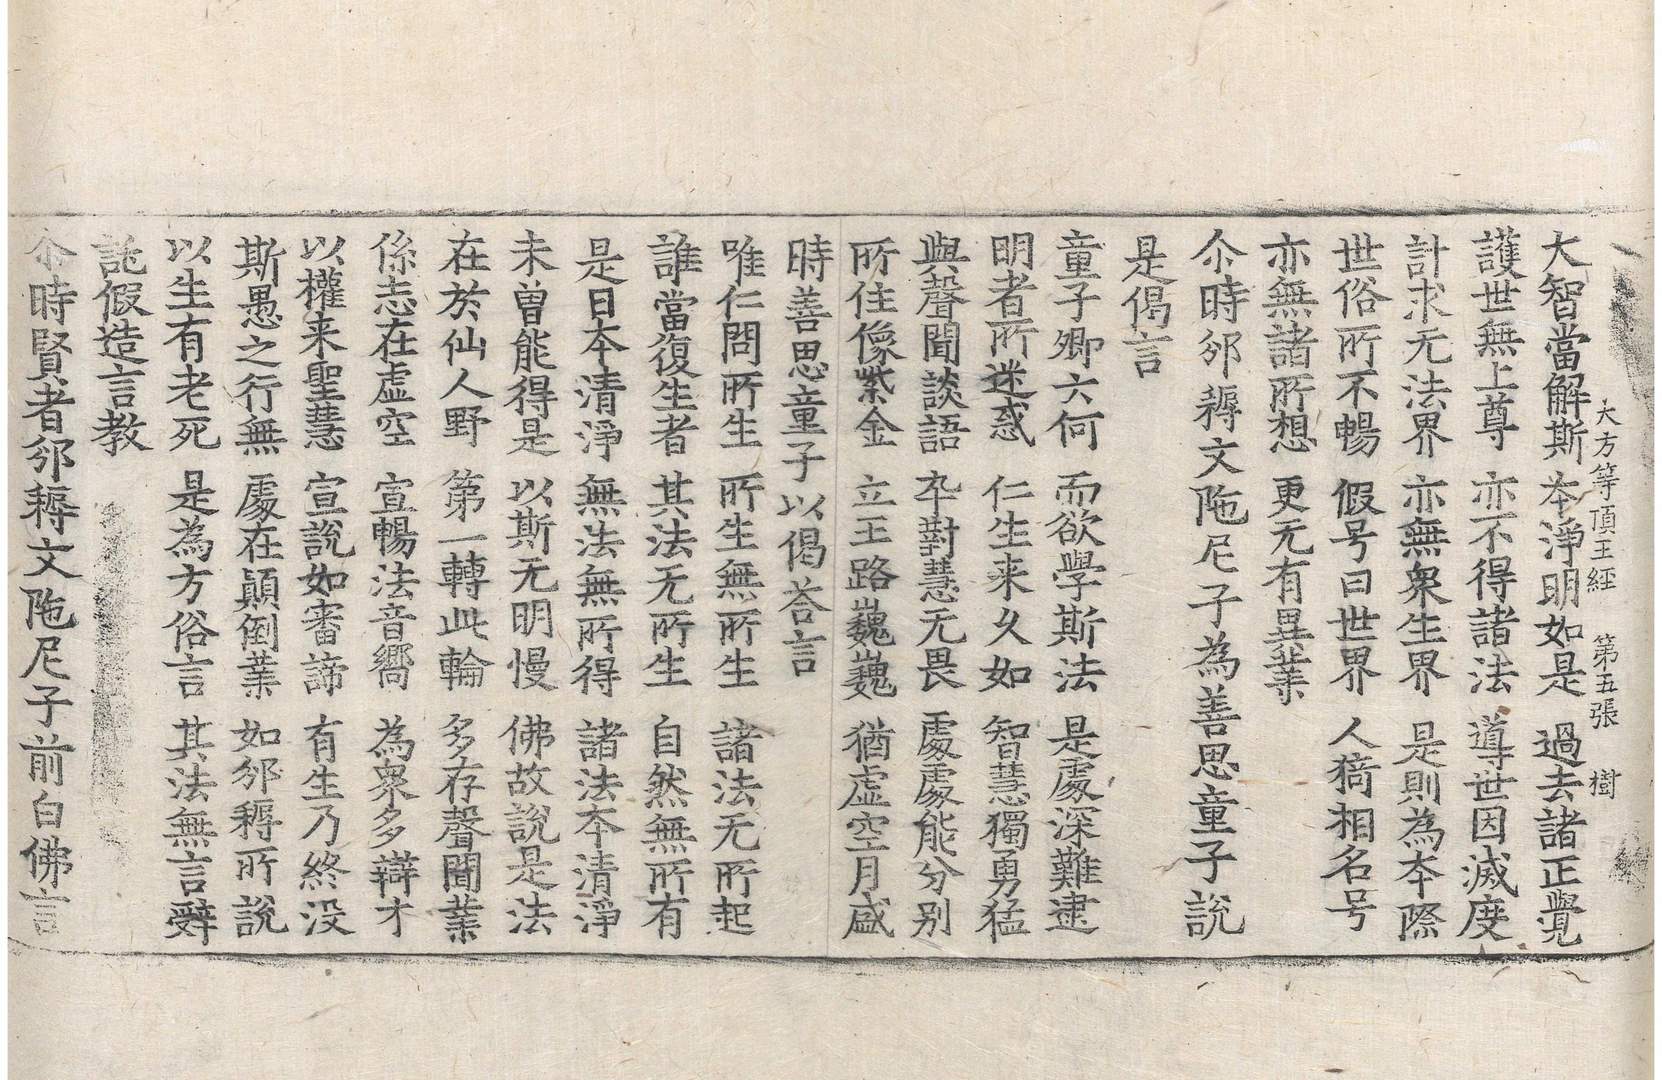 大方等頂王經 第五張 樹
大智當解斯 夲淨明如是 過去諸正覺
護世無上尊 亦不得諸法 導世因滅度
計求无法界 亦無衆生界 是則為夲際
世俗所不暢 假号曰世界 人猗相名号
亦無諸所想 更无有異業
尒時邠耨文陁尼子為善思童子說
是偈言
童子卿六何 而欲學斯法 是處深難逮
明者所迷惑 仁生来久如 智慧獨勇猛
與聲聞談語 卒對慧无畏 處處能分別
所住像紫金 立王路巍巍 猶虛空月盛
時善思童子以偈荅言
唯仁問所生 所生無所生 諸法无所起
誰當復生者 其法无所生 自然無所有
是日夲清淨 無法無所得 諸法夲清淨
未曾能得是 以斯无明慢 佛故說是法
在於仙人野 第一轉此輪 多存聲聞業
係志在虛空 宣暢法音嚮 為衆多辯才
以權来聖慧 宣說如審諦 有生乃終没
斯愚之行無 處在顚倒業 如邠耨所說
以生有老死 是為方俗言 其法無言辭
託假造言教
尒時賢者邠耨文陁尼子前白佛言